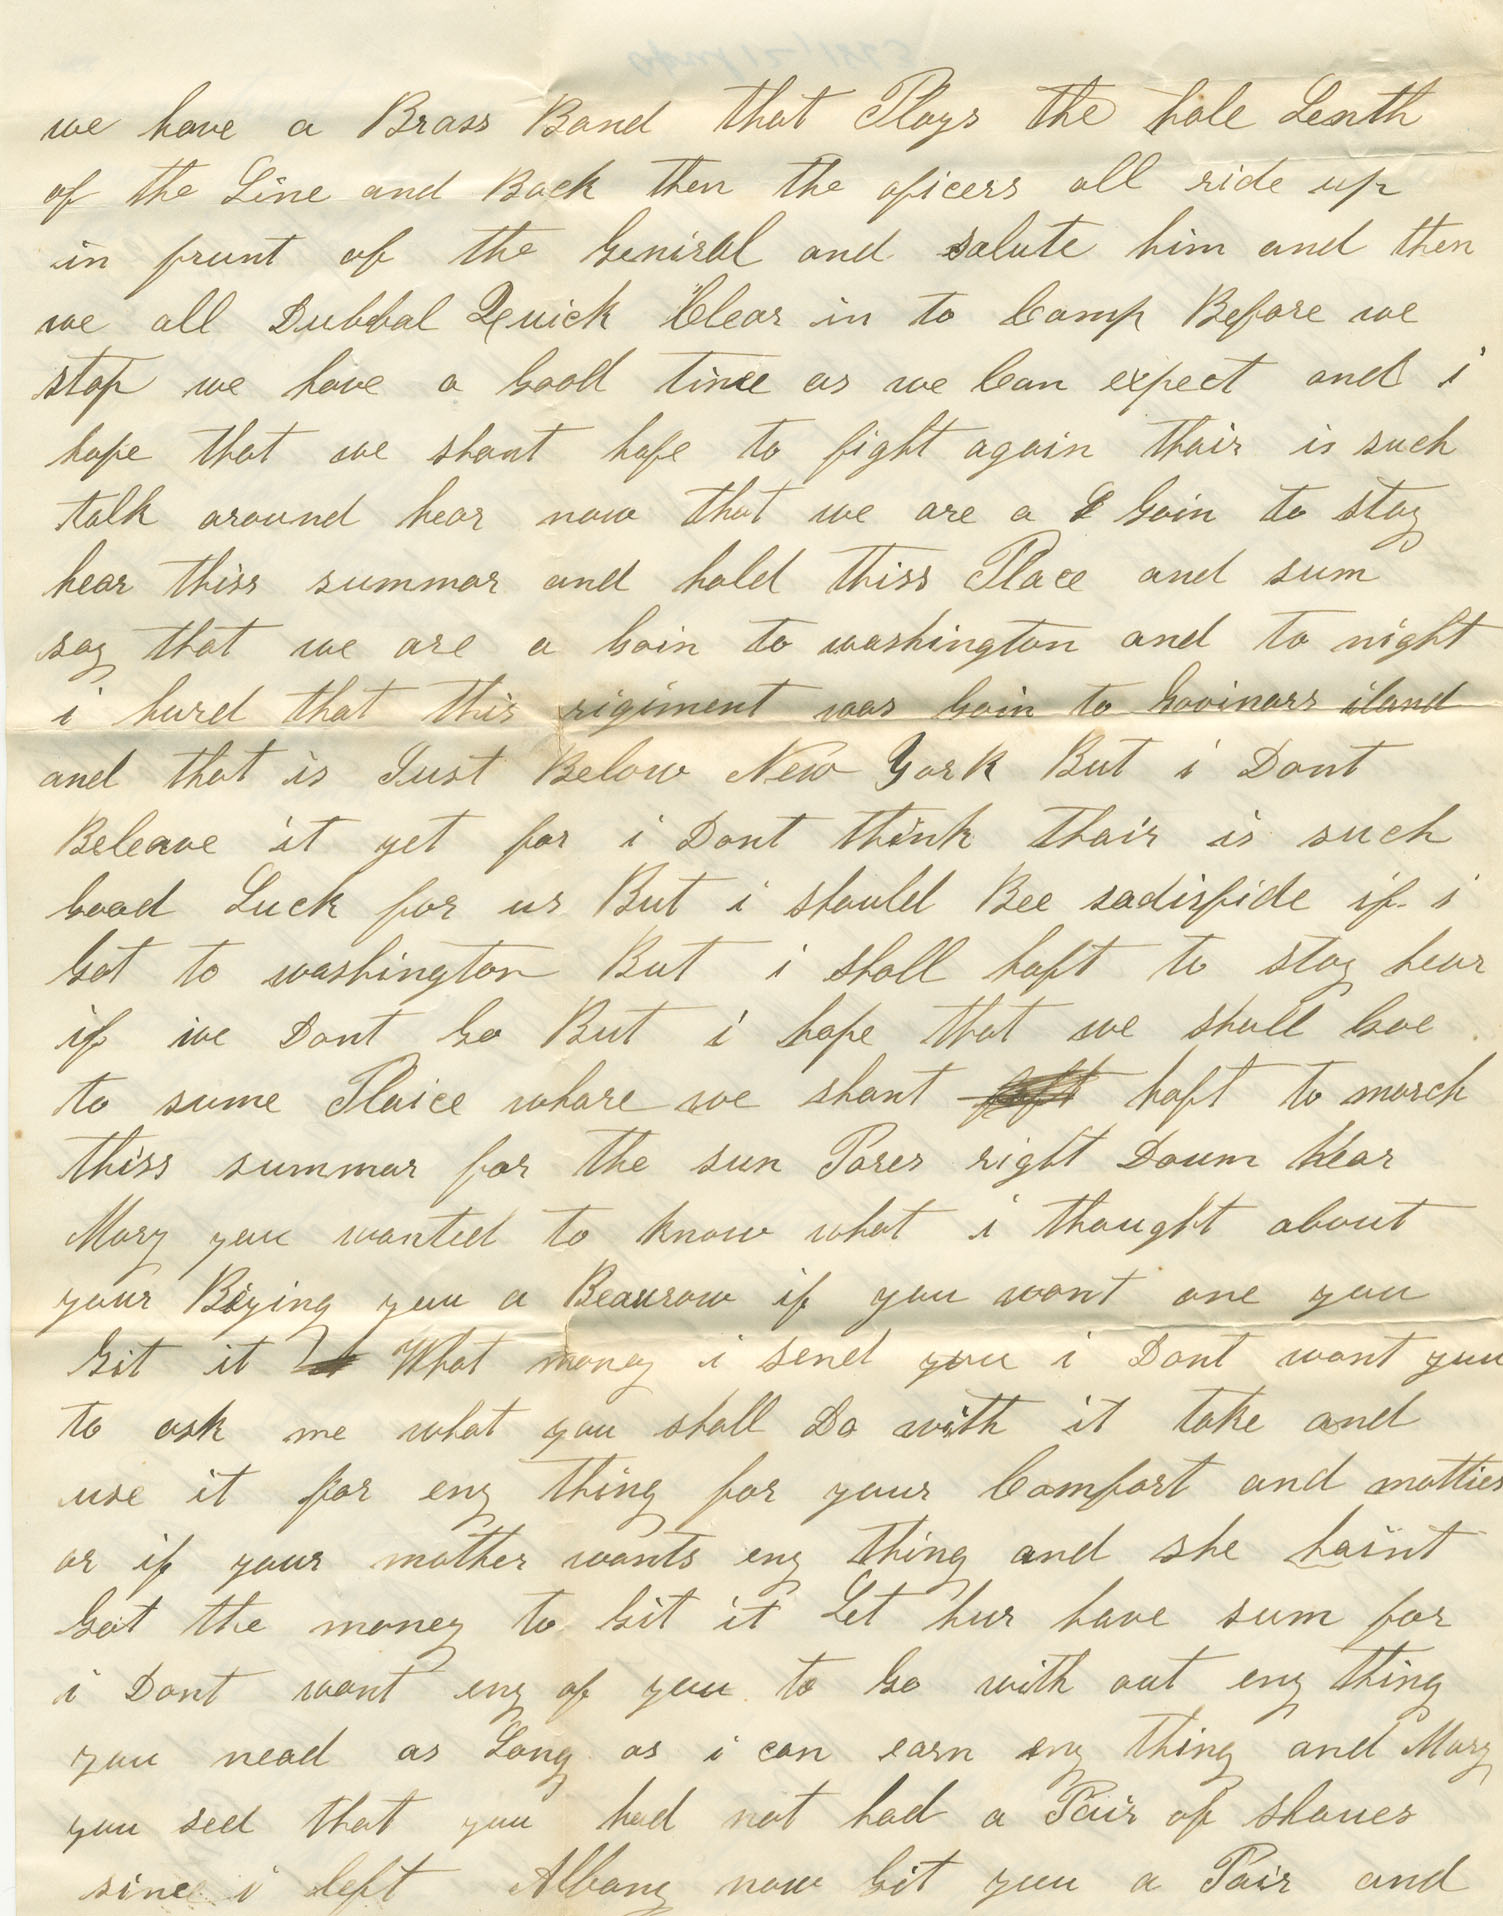 we have a Brass Band that Plays the hole Lenth
of the Line and Back then the oficers all ride up
in frunt of the Geniral and salute him and then
we all Dubbal Quick Clear in to Camp Before we
stop we have a Good time as we Can expect and i
hope that we shant hafe to fight again thair is such
talk around hear now that we are a Goin to stay
hear thiss summar and hold thiss Place and sum
say that we are a Goin to washington and to night
i hurd that this rigiment was Goin to Govinars iland
and that is Just Below New York But i Dont
Beleave it yet for i Dont think thair is such
Good Luck for us But i should Bee sadisfide if i
Got to washington But i shall haft to stay hear
if we Dont Go But i hope that we shall Goe
to sume Plaice whare we shant haft to march
thiss summar for the sun Pores right Doum hear
Mary you wanted to know what i thought about
your Biying you a Beaurow if you want one you
Git it What money i send you i Dont want you
to ask me what you shall Do with it take and
use it for eny thing for your Comfort and matties
or if your mother wants eny thing and she haint
Got the money to Git it Let hur have sum for
i Dont want eny of you to Go with out eny thing
you nead as Long as i can earn eny thing and Mary
you sed that you had not had a Pair of shoues
since i left Albany now Git you a Pair and